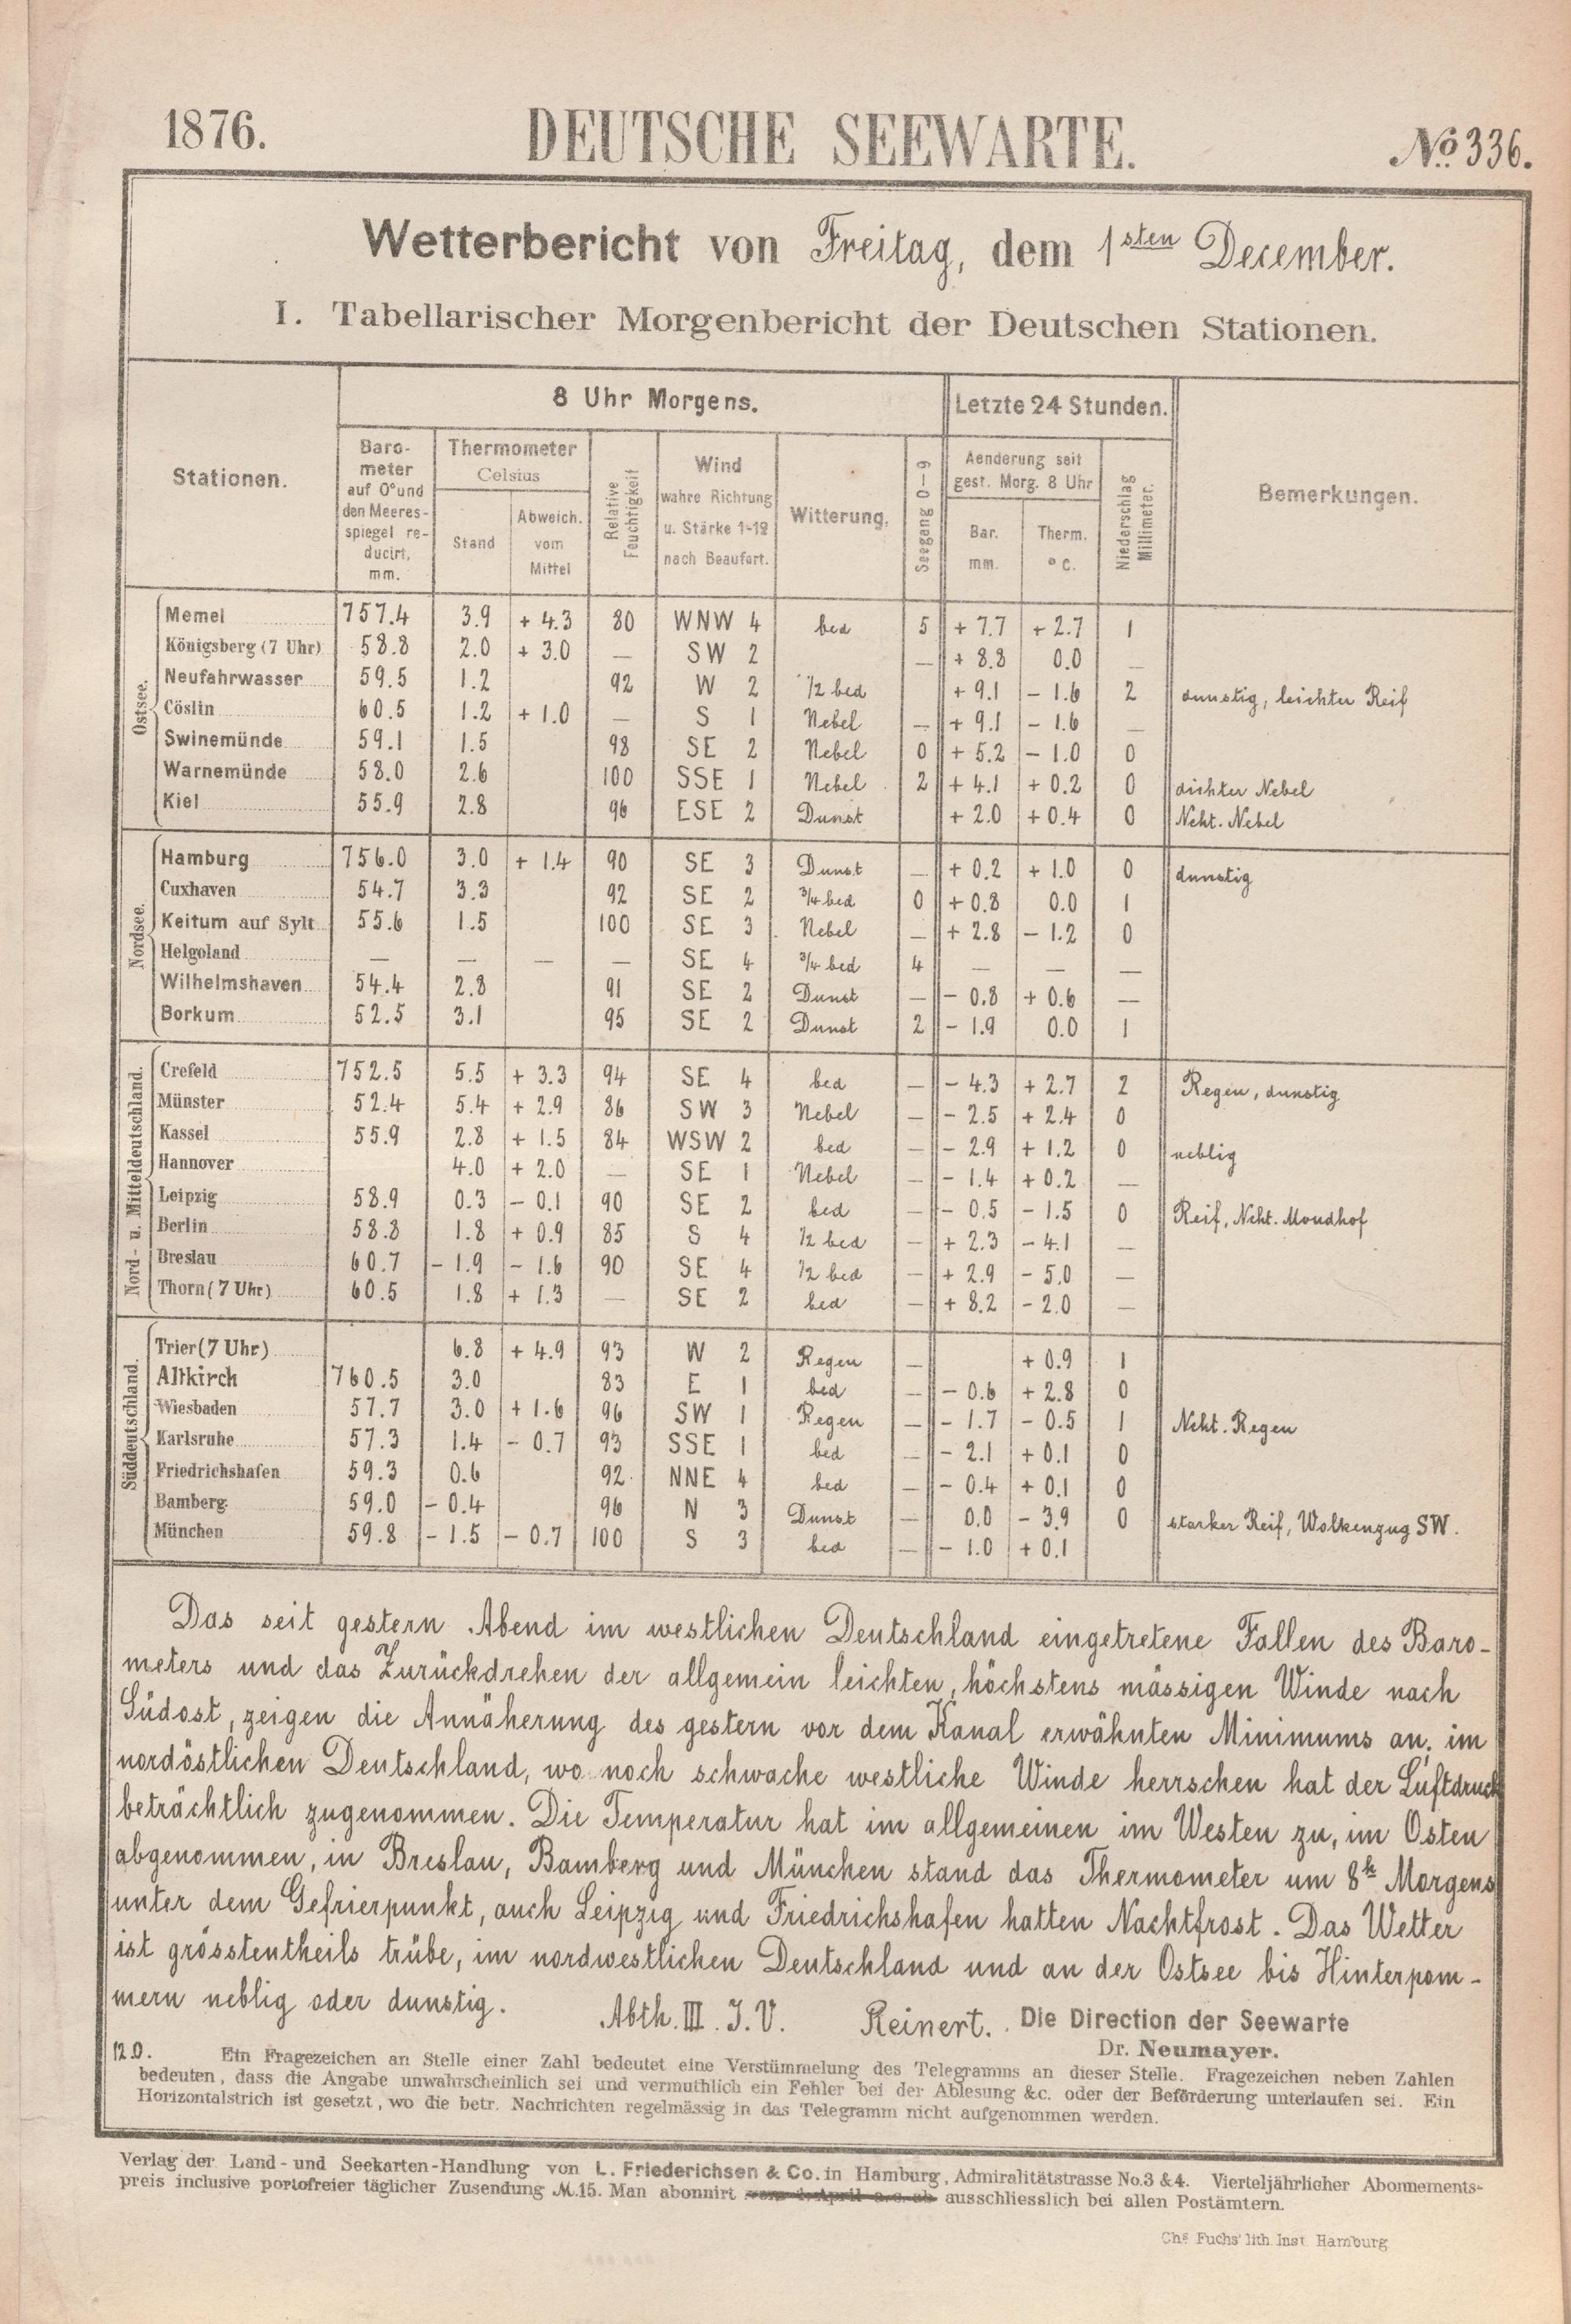 1876. DEUTSCHE SEEWARTE. No. 336.
Wetterbericht von Freitag, dem 1sten December.
I. Tabellarischer Morgenbericht der Deutschen Stationen.
Stationen. 8 Uhr Morgens. Letzte 24 Stunden. Bemerkungen.
Barometer auf 0° und den Meeresspiegel reducirt, mm. Thermometer Celsius Stand Abweich. vom Mittel Relative Feuchtigkeit Wind wahre Richtung u. Stärke 1-12 nach Beaufort. Witterung. Seegang 0-9 Aenderung seit gest. Morg. 8 Uhr Bar. mm. Therm. ° C. Niederschlag Millimeter.
Ostsee.
Memel 757.4 3.9 + 4.3 80 WNW 4 bed 5 + 7.7 + 2.7 1
Königsberg (7 Uhr) 58.8 2.0 + 3.0 — SW 2 — + 8.8 0.0 —
Neufahrwasser 59.5 1.2 92 W 2 1/2 bed + 9.1 - 1.6 2 dunstig, leichter Reif
Cöslin 60.5 1.2 + 1.0 — S 1 Nebel — + 9.1 - 1.6 —
Swinemünde 59.1 1.5 98 SE 2 Nebel 0 + 5.2 - 1.0 0
Warnemünde 58.0 2.6 100 SSE 1 Nebel 2 + 4.1 + 0.2 0 dichter Nebel
Kiel 55.9 2.8 96 ESE 2 Dunst + 2.0 + 0.4 0 Ncht. Nebel
Nordsee.
Hamburg 756.0 3.0 + 1.4 90 SE 3 Dunst — + 0.2 + 1.0 0 dunstig
Cuxhaven 54.7 3.3 92 SE 2 3/4 bed 0 + 0.8 0.0 1
Keitum auf Sylt 55.6 1.5 100 SE 3 Nebel — + 2.8 - 1.2 0
Helgoland — — — — SE 4 3/4 bed 4 — — —
Wilhelmshaven 54.4 2.8 91 SE 2 Dunst — - 0.8 + 0.6 —
Borkum 52.5 3.1 95 SE 2 Dunst 2 - 1.9 0.0 1
Nord- u. Mitteldeutschland.
Crefeld 752.5 5.5 + 3.3 94 SE 4 bed — - 4.3 + 2.7 2 Regen, dunstig
Münster 52.4 5.4 + 2.9 86 SW 3 Nebel — - 2.5 + 2.4 0
Kassel 55.9 2.8 + 1.5 84 WSW 2 bed — - 2.9 + 1.2 0 neblig
Hannover 4.0 + 2.0 — SE 1 Nebel — - 1.4 + 0.2 —
Leipzig 58.9 0.3 - 0.1 90 SE 2 bed — - 0.5 - 1.5 0 Reif, Ncht. Mondhof
Berlin 58.8 1.8 + 0.9 85 S 4 1/2 bed — + 2.3 - 4.1 —
Breslau 60.7 - 1.9 - 1.6 90 SE 4 1/2 bed — + 2.9 - 5.0 —
Thorn (7 Uhr) 60.5 1.8 + 1.3 — SE 2 bed — + 8.2 - 2.0 —
Süddeutschland.
Trier (7 Uhr) 6.8 + 4.9 93 W 2 Regen — + 0.9 1
Altkirch 760.5 3.0 83 E 1 bed — - 0.6 + 2.8 0
Wiesbaden 57.7 3.0 + 1.6 96 SW 1 Regen — - 1.7 - 0.5 1 Ncht. Regen
Karlsruhe 57.3 1.4 - 0.7 93 SSE 1 bed — - 2.1 + 0.1 0
Friedrichshafen 59.3 0.6 92 NNE 4 bed — - 0.4 + 0.1 0
Bamberg 59.0 - 0.4 96 N 3 Dunst — 0.0 - 3.9 0 starker Reif, Wolkenzug SW.
München 59.8 - 1.5 - 0.7 100 S 3 bed — - 1.0 + 0.1
Das seit gestern Abend im westlichen Deutschland eingetretene Fallen des Baro-
meters und das Zurückdrehen der allgemein leichten, höchstens mässigen Winde nach
Südost, zeigen die Annäherung des gestern vor dem Kanal erwähnten Minimums an; im
nordöstlichen Deutschland, wo noch schwache westliche Winde herrschen hat der Luftdruck
beträchtlich zugenommen. Die Temperatur hat im allgemeinen im Westen zu, im Osten
abgenommen, in Breslau, Bamberg und München stand das Thermometer um 8h Morgens
unter dem Gefrierpunkt, auch Leipzig und Friedrichshafen hatten Nachtfrost. Das Wetter
ist grösstentheils trübe, im nordwestlichen Deutschland und an der Ostsee bis Hinterpom-
mern neblig oder dunstig. Abth. III. I. V. Reinert. Die Direction der Seewarte
Dr. Neumayer.
12.0. Ein Fragezeichen an Stelle einer Zahl bedeutet eine Verstümmelung des Telegramms an dieser Stelle. Fragezeichen neben Zahlen
bedeuten, dass die Angabe unwahrscheinlich sei und vermuthlich ein Fehler bei der Ablesung &c. oder der Beförderung unterlaufen sei. Ein
Horizontalstrich ist gesetzt, wo die betr. Nachrichten regelmässig in das Telegramm nicht aufgenommen werden.
Verlag der Land- und Seekarten-Handlung von L. Friederichsen & Co. in Hamburg, Admiralitätstrasse No. 3 & 4. Vierteljährlicher Abonnements-
preis inclusive portofreier täglicher Zusendung M. 15. Man abonnirt ausschliesslich bei allen Postämtern.
Chs Fuchs' lith. Inst. Hamburg